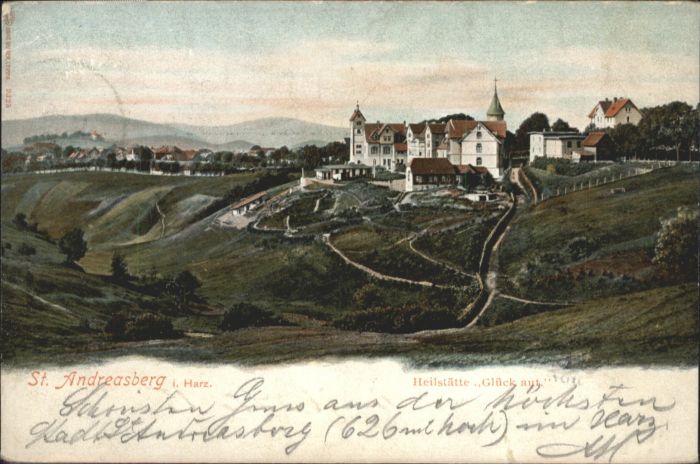 St. Andreasberg i. Harz.
Heilstätte „Glück auf."
Schönsten Gruss aus der höchsten
Stadt St. Andreasberg (626 m hoch) im Harz